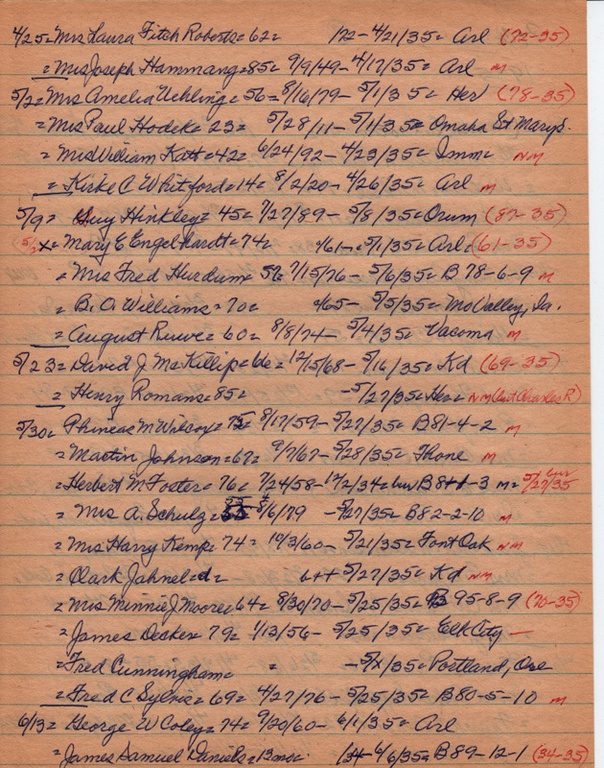 4/25= Mrs Laura Fitch Roberts= 62= 172- 4/21/35= Arl (72-35)
= Mrs Joseph Hammang= 85= 9/9/49- 4/17/35= Arl M
5/2= Mrs Amelia Uehling= 56= 8/16/79- 5/1/35= Her (78-35)
= Mrs Paul Hodek= 23= 5/28/11- 5/1/35= Omaha St Marys.
= Mrs William Katt= 42= 6/24/92- 4/23/35= Imm= NM
= Kirke C Whitford= 14= 8/2/20- 4/26/35= Arl M
5/9= Guy Hinkley= 45= 7/27/89- 5/8/35= Orum (87-35)
5/2 x= Mary E Engelhardt= 74= 1/61-= 5/1/35= Arl= (61-35)
= Mrs Fred Hurdum= 7/15/76- 5/6/35= B 78-6-9 M
= B. O. Williams= 70= 1865- 5/5/35= Mo Valley, Ia.
= August Ruwe= 60= 8/8/74- 5/4/35= Vacoma M
5/23= David J. McKillip= 66= 12/15/68- 5/16/35= Kd (69-35)
= Henry Romans= 85= -5/27/35= Her= NM (but Charles R)
5/30= Phineas M Wilcox= 75= 8/17/59- 5/27/35= B81-4-2 M
= Martin Johnson= 67= 9/7/67- 5/28/35= Fhone M
= Herbert M Foster= 76= 7/24/58- 12/2/34= bur B8++-3 M= bur 5/27/35
= Mrs A. Schulz= 8/6/79 - 5/27/35= B82-2-10 M
= Mrs Harry Kemp= 74= 10/3/60- 5/21/35= Font Oak NM
= Clark Jahnel= d= b++ 5/27/35= Kd NM
= Mrs Minnie J Moore= 64= 8/30/70- 5/25/35= B 95-8-9 (70-35)
= James Decker= 79= 1/13/56- 5/25/35= Elk City -
= Fred Cunningham= = -5/x/35= Portland, Ore
= Fred C Sylvis= 69= 4/27/76- 5/25/35= B80-5-10 M
6/13= George W Coley= 74= 9/20/60- 6/1/35= Arl
= James Samuel Daniels= 13mo= 134- 6/6/35= B89-12-1 (34-35)